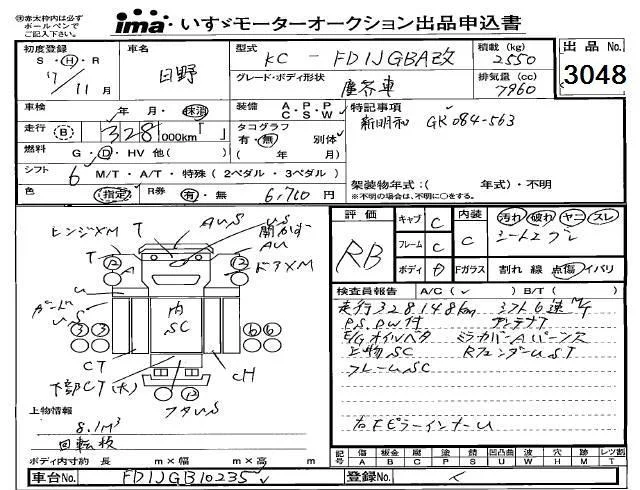 ※赤太枠内は必ず
ボールペンで
ご記入下さい。
ima いすゞモーターオークション出品申込書
初度登録 車名 型式 積載 (kg) 出品 No.
S・H・R 17/11月 日野 KC - FD1JGBA改 2550 3048
グレード・ボディ形状 塵芥車 排気量 (cc) 7960
車検 年 月・抹消 装備 A.P.P C.S.W 特記事項
走行 (B) 328 000km「 」 タコグラフ 有・無 別体 新明和 GR084-563
燃料 G・D・HV 他( ) ( 年 月)
シフト 6 M/T・A/T・特殊 (2ペダル・3ペダル) 架装物年式:( 年式)・不明
色 (指定) R券 有・無 6,710円 ※不明の場合は、不明に○をする。
評価 RB
キャブ C 内装 C 汚れ 破れ ヤニ スレ
フレーム C シートエブレ
ボディ D Fガラス 割れ 線 点傷 イバリ
検査員報告 A/C(✓) B/T( )
走行328148km シフト6速M/T
P.S. P.W付 アンテナT
E/Gオイルベタ ミラカバーAパーンズ
上物SC RフェンダーUST
フレームSC
右Fピラーインナーu
ヒンジ×M T AuS uS
開かず
Au
T A ドア×M
12 12
u
ガードル
uS
内
SC
3 3 6 6
CT CH
下部CT(大)
フタuS
上物情報
8.1M³
回転板
ボディ内寸約 長 m×幅 m×高 m
記号 傷 板金 腐 塗 錆 凹凸曲 波 穴 跡 レツ割
A B C P S U W H M T
車台No. FD1JGB10235
シリアルNo.